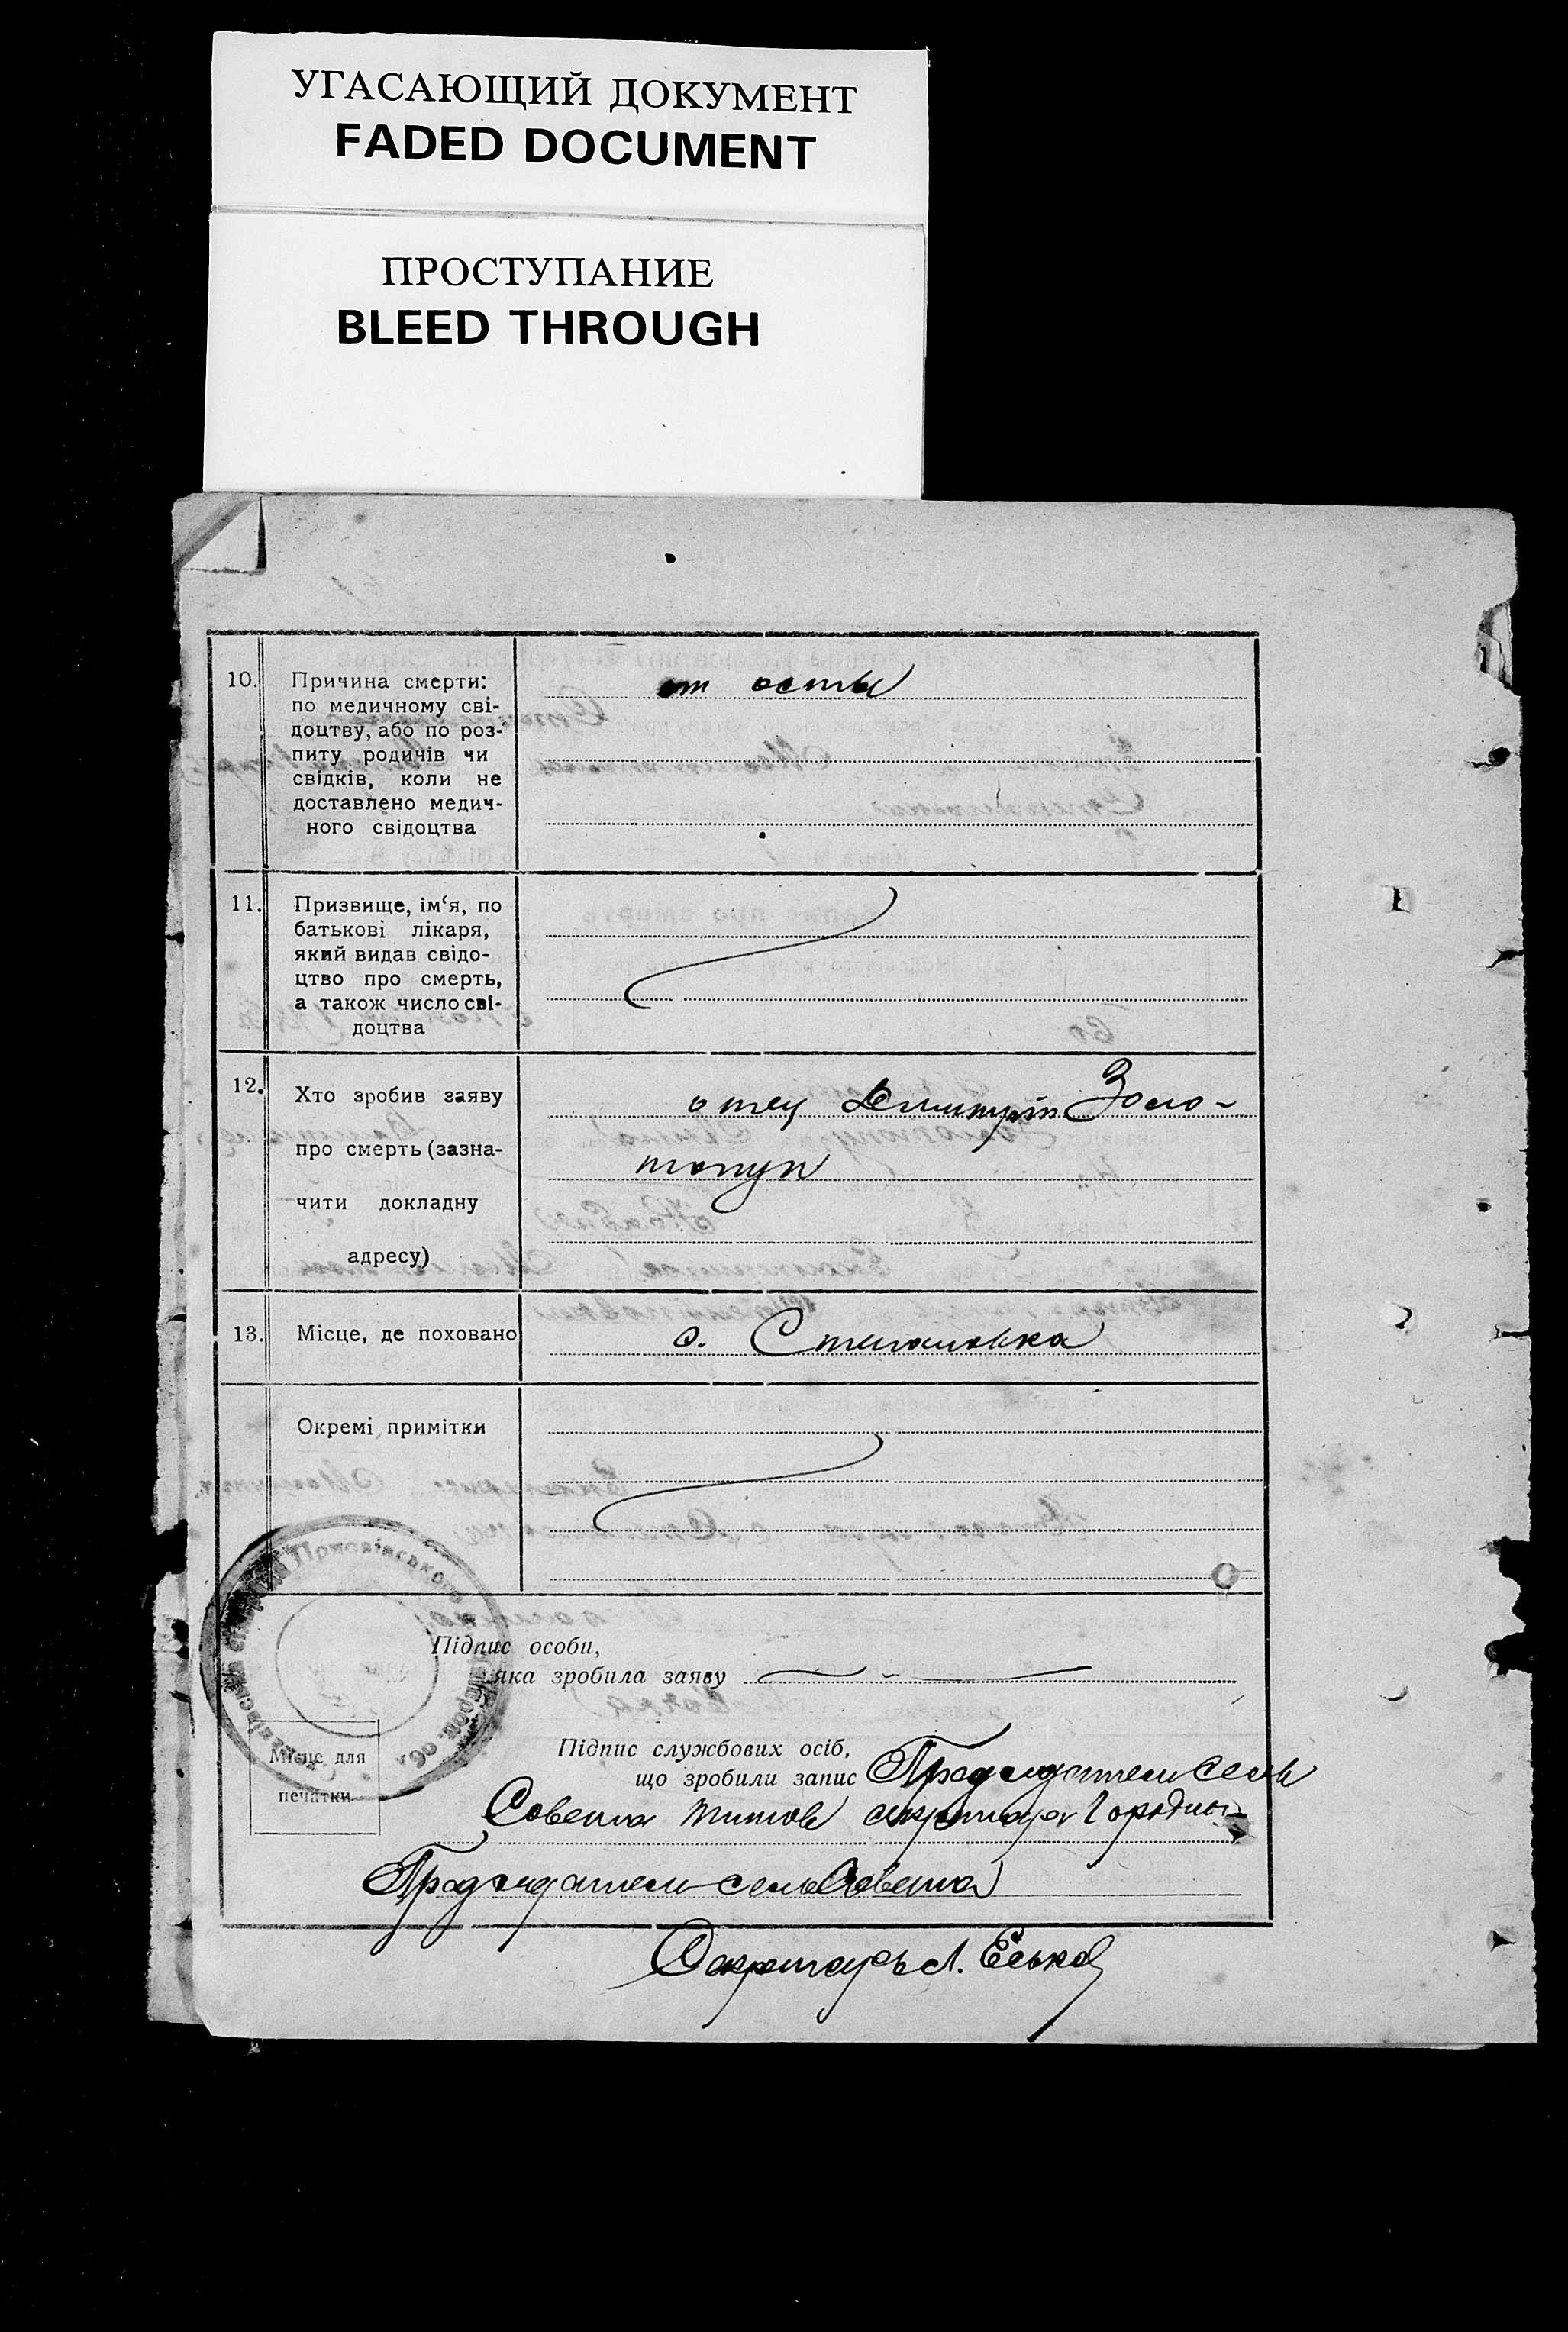 УГАСАЮЩИЙ ДОКУМЕНТ
FADED DOCUMENT
ПРОСТУПАНИЕ
BLEED THROUGH
10. Причина смерти:
по медичному сві-
доцтву, або по роз-
питу родичів чи
свідків, коли не
доставлено медич-
ного свідоцтва
от оспы
11. Призвище, ім‘я, по
батькові лікаря,
який видав свідо-
цтво про смерть,
а також число сві-
доцтва
12. Хто зробив заяву
про смерть (зазна-
чити докладну
адресу)
отец Дмитрий Золо-
топуп
13. Місце, де поховано
с. Степановка
Окремі примітки
Підпис особи,
яка зробила заяву
Місце для
печатки
Підпис службових осіб,
що зробили запис Председатель сель
Совета Титов секретарь
Председатель сельСовета
Секретарь Л. Еськов